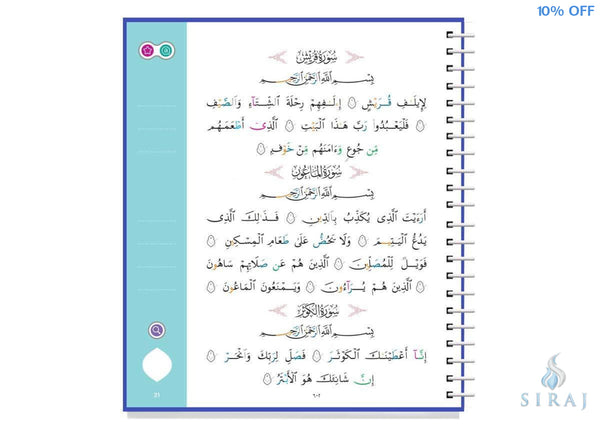 10% OFF
سُورَةُ قُرَيْشٍ
بِسْمِ ٱللَّهِ ٱلرَّحْمَٰنِ ٱلرَّحِيمِ
لِإِيلَٰفِ قُرَيْشٍ ۝ إِۦلَٰفِهِمْ رِحْلَةَ ٱلشِّتَآءِ وَٱلصَّيْفِ
۝ فَلْيَعْبُدُوا۟ رَبَّ هَٰذَا ٱلْبَيْتِ ۝ ٱلَّذِىٓ أَطْعَمَهُم
مِّن جُوعٍ وَءَامَنَهُم مِّنْ خَوْفٍۭ ۝
سُورَةُ المَاعُونِ
بِسْمِ ٱللَّهِ ٱلرَّحْمَٰنِ ٱلرَّحِيمِ
أَرَءَيْتَ ٱلَّذِى يُكَذِّبُ بِٱلدِّينِ ۝ فَذَٰلِكَ ٱلَّذِى
يَدُعُّ ٱلْيَتِيمَ ۝ وَلَا يَحُضُّ عَلَىٰ طَعَامِ ٱلْمِسْكِينِ ۝
فَوَيْلٌ لِّلْمُصَلِّينَ ۝ ٱلَّذِينَ هُمْ عَن صَلَاتِهِمْ سَاهُونَ
۝ ٱلَّذِينَ هُمْ يُرَآءُونَ ۝ وَيَمْنَعُونَ ٱلْمَاعُونَ ۝
سُورَةُ الكَوْثَرِ
بِسْمِ ٱللَّهِ ٱلرَّحْمَٰنِ ٱلرَّحِيمِ
إِنَّآ أَعْطَيْنَٰكَ ٱلْكَوْثَرَ ۝ فَصَلِّ لِرَبِّكَ وَٱنْحَرْ ۝
إِنَّ شَانِئَكَ هُوَ ٱلْأَبْتَرُ ۝
٦٠٢
21
SIRAJ